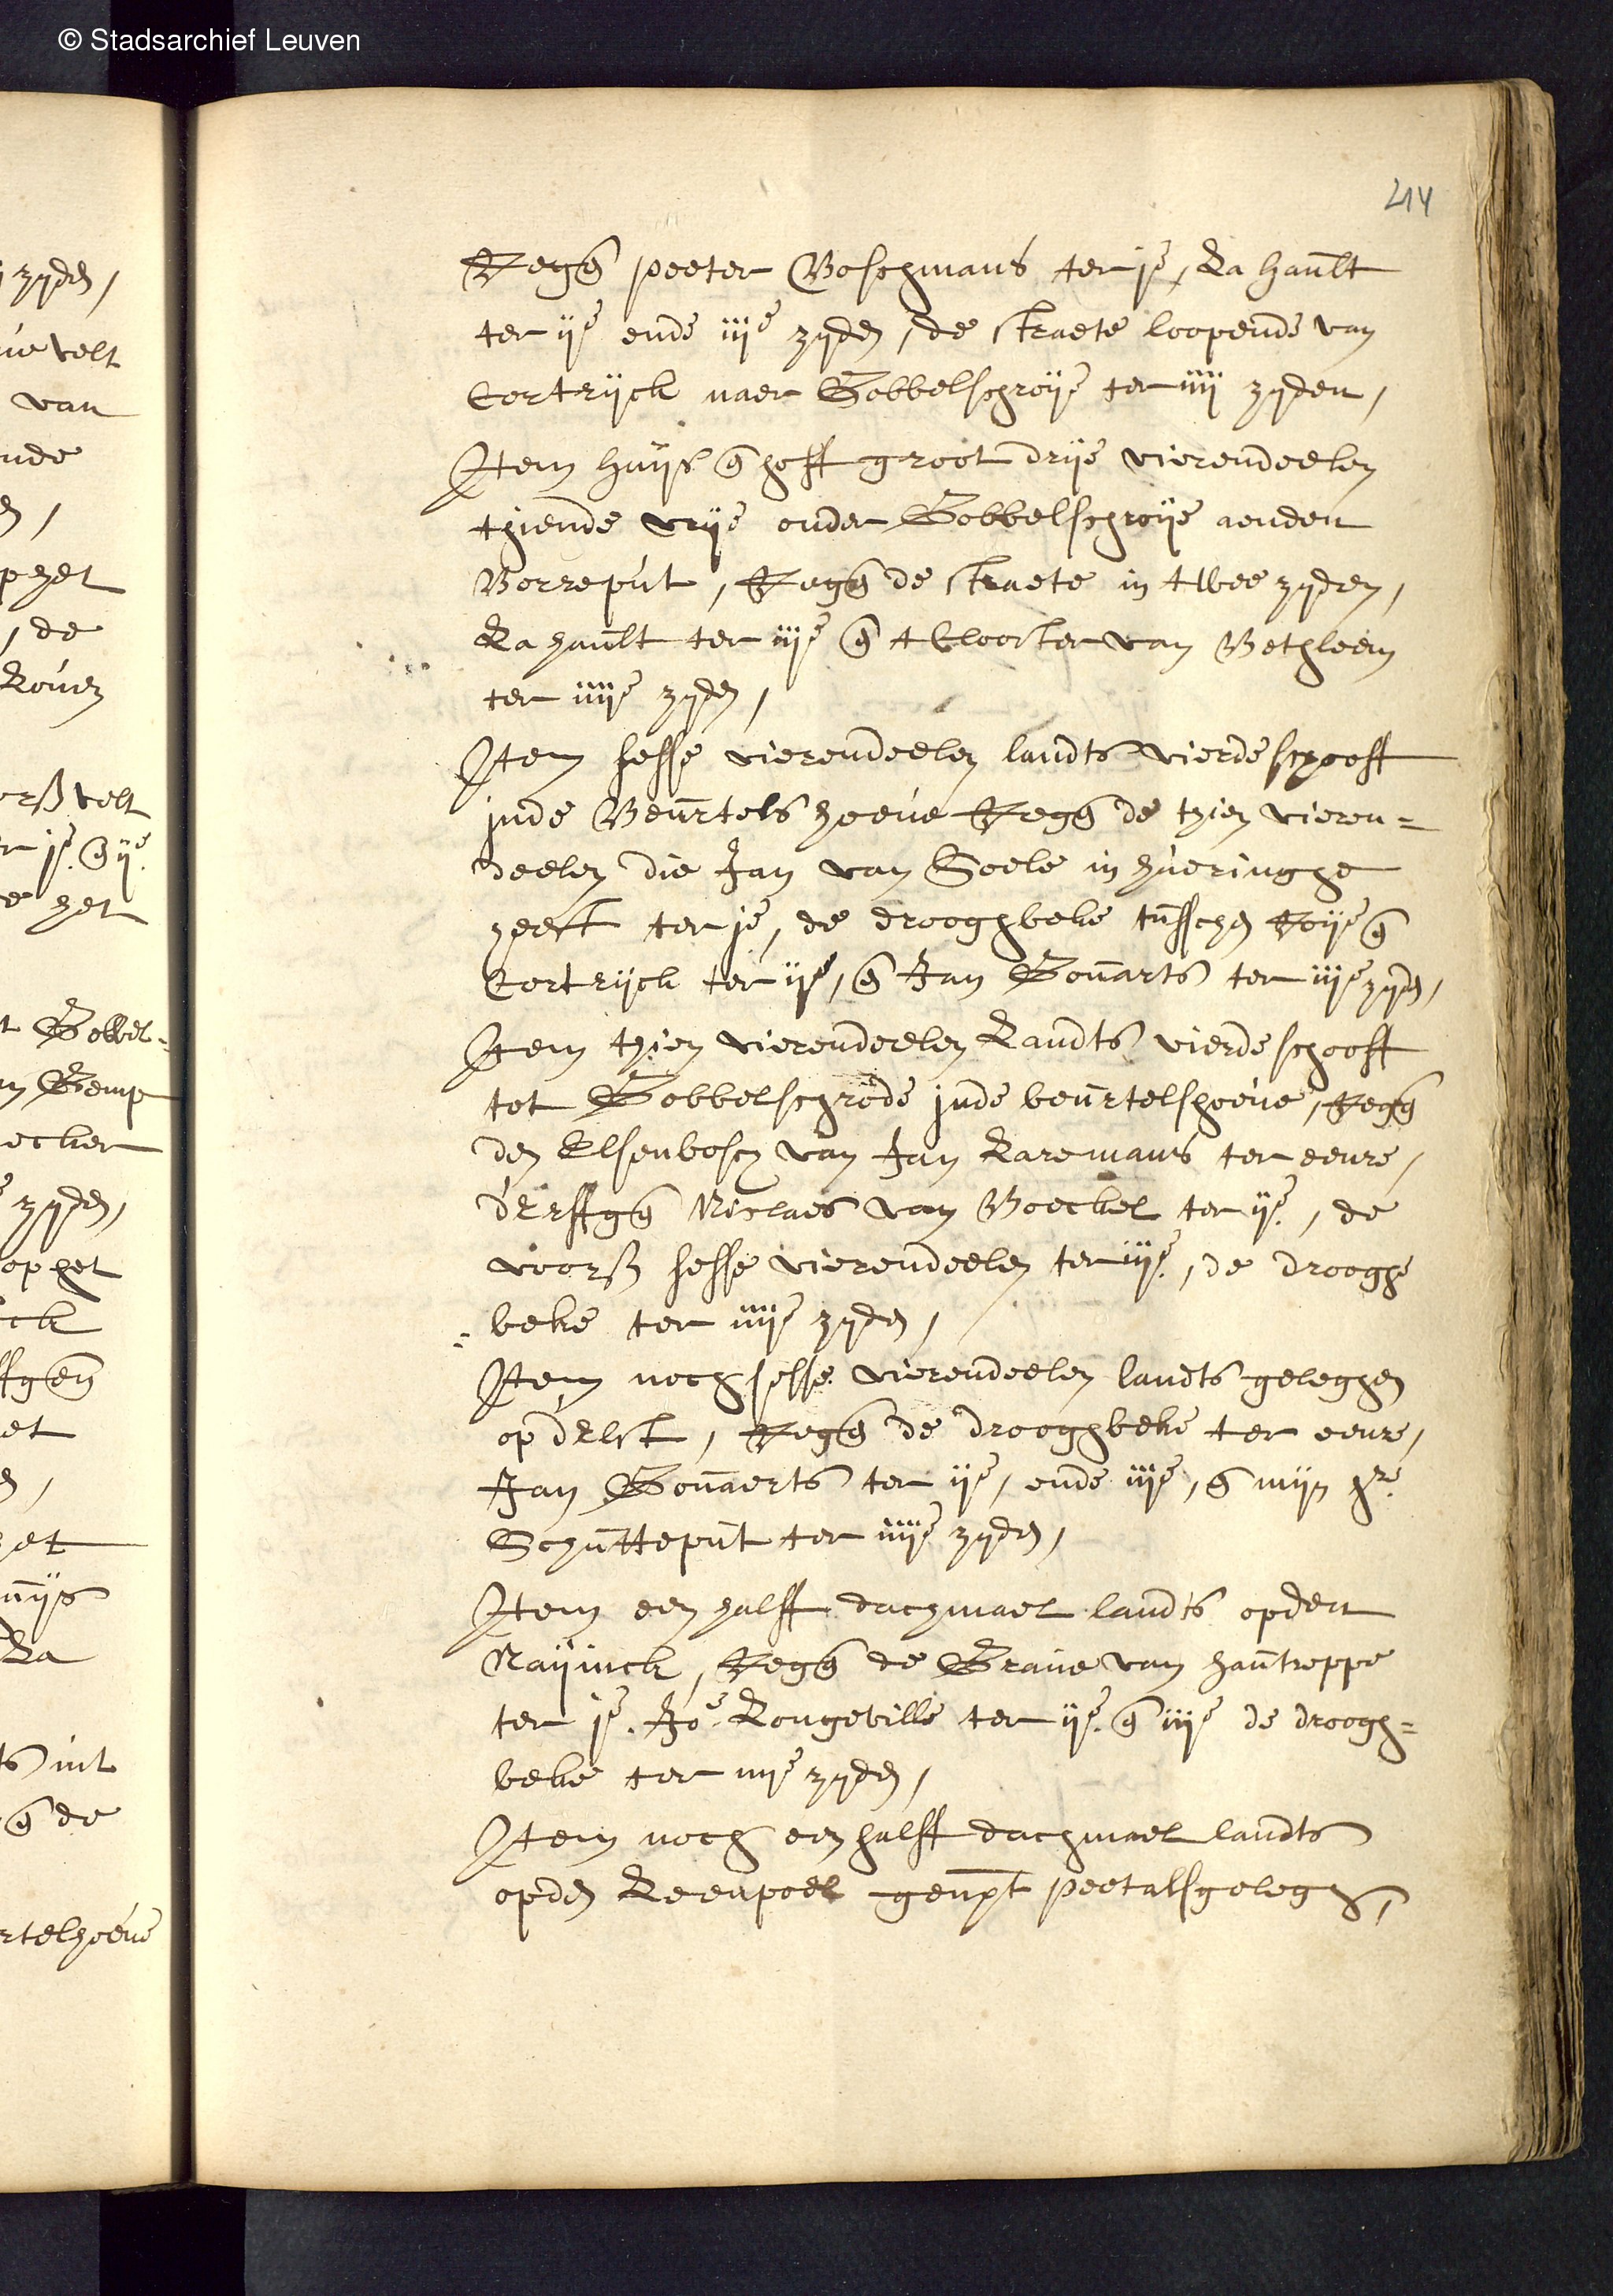 © Stadsarchief Leuven
214
Regen Peeter Boschmans ter je, La Hault
ter ije ende iije zyden, de straete loopende van
Cortryck naer Gobbelschroye ter iiij zyden,
Item huys en hoff groot drye vierendeelen
thiende vrye onder Gobbelschroye aenden
Borreput, Regen de straete in twee zyden,
La hault ter iije en t Clooster van Bethleem
ter iiije zyden,
Item sesse vierendeelen landts vierde schooff
inde Beurtels hoeve Regen de thien vieren=
deelen die Jan van Goele in hueringhe
heeft ter je, de drooghbeke tusschen Roye en
Cortryck ter ije, en Jan Govarts ter iije zyden,
Item thien vierendeelen Landts vierde schooff
tot Gobbelschrode inde beurtelshoeve, Regen
den Elsenbosch van Jan Laremans ter eenre,
d'Erffgen Niclaes van Boeckel ter ije, de
voors sesse vierendeelen ter iije, de drooghe
beke ter iiije zyden,
Item noch sesse vierendeelen landts geleghen
op d'Elst, Regen de drooghbeke ter eenre,
Jan Govaerts ter ije, ende iije, en myn hr
Schutteput ter iiije zyden,
Item een halff dachmael landts opden
Nayinck, Regen de Grave van hautreppe
ter je. Joe Longeville ter ije. en iije de droogh=
beke ter iiije zyden,
Item noch een halff dachmael landts
opden Leenpoel genpt Peetalsgelegh,
zyden,
velt
van
ende
het
, de
Loven
velt
je. en ije
het
Gobbel=
Gemp
ecker
zyden,
op het
ck
ffgen
et
La
int
en de
rtelhoeve